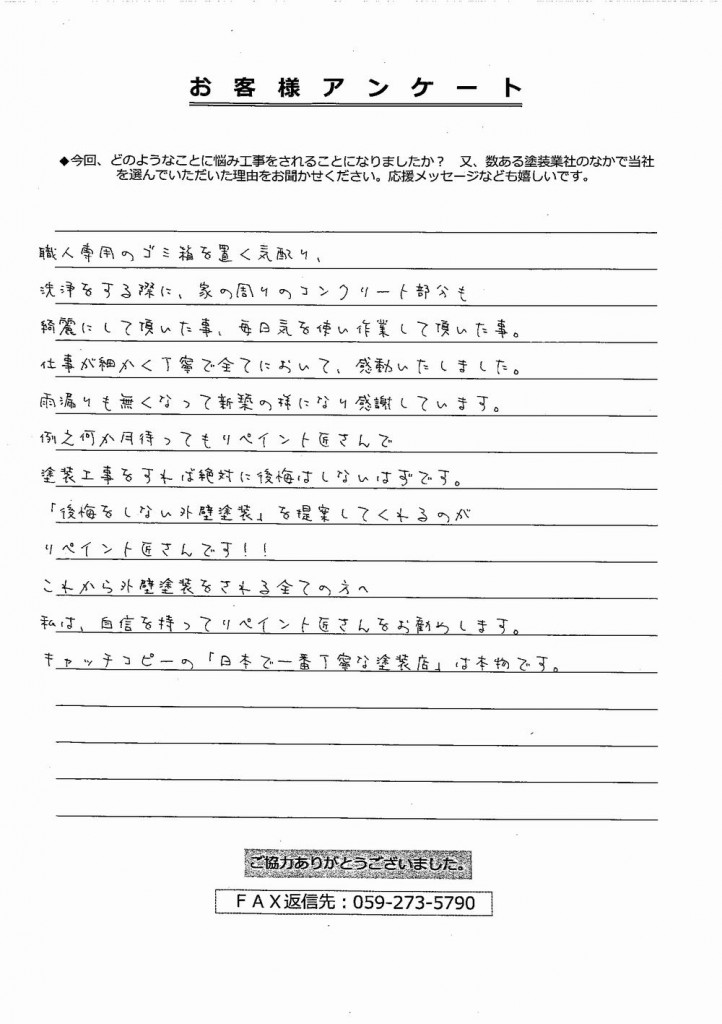 お客様アンケート
◆今回、どのようなことに悩み工事をされることになりましたか？　又、数ある塗装業社のなかで当社
を選んでいただいた理由をお聞かせください。応援メッセージなども嬉しいです。
職人専用のゴミ箱を置く気配り、
洗浄をする際に、家の周りのコンクリート部分も
綺麗にして頂いた事、毎日気を使い作業して頂いた事。
仕事が細かく丁寧で全てにおいて、感動いたしました。
雨漏りも無くなって新築の様になり感謝しています。
例え何か月待ってもリペイント匠さんで
塗装工事をすれば絶対に後悔はしないはずです。
「後悔をしない外壁塗装」を提案してくれるのが
リペイント匠さんです！！
これから外壁塗装をされる全ての方へ
私は、自信を持ってリペイント匠さんをお勧めします。
キャッチコピーの「日本で一番丁寧な塗装店」は本物です。
ご協力ありがとうございました。
ＦＡＸ返信先：059-273-5790